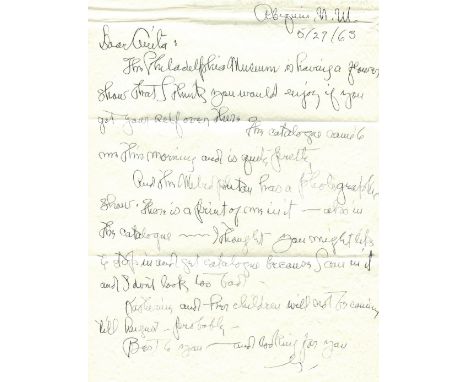 Abiquiu N. M.
5/27/63
Dear Anita:
The Philadelphia Museum is having a flower
show that I think you would enjoy if you
got your self over there
The catalogue came to
me this morning and is quite pretty
And the Metropolitan has a photography
show. There is a print of me in it — also in
the catalogue — I thought you might like
to stop in and get catalogue because I am in it
and I dont look too bad —
Katherine and her children will not be coming
till August — probably —
Best to you — and looking for you